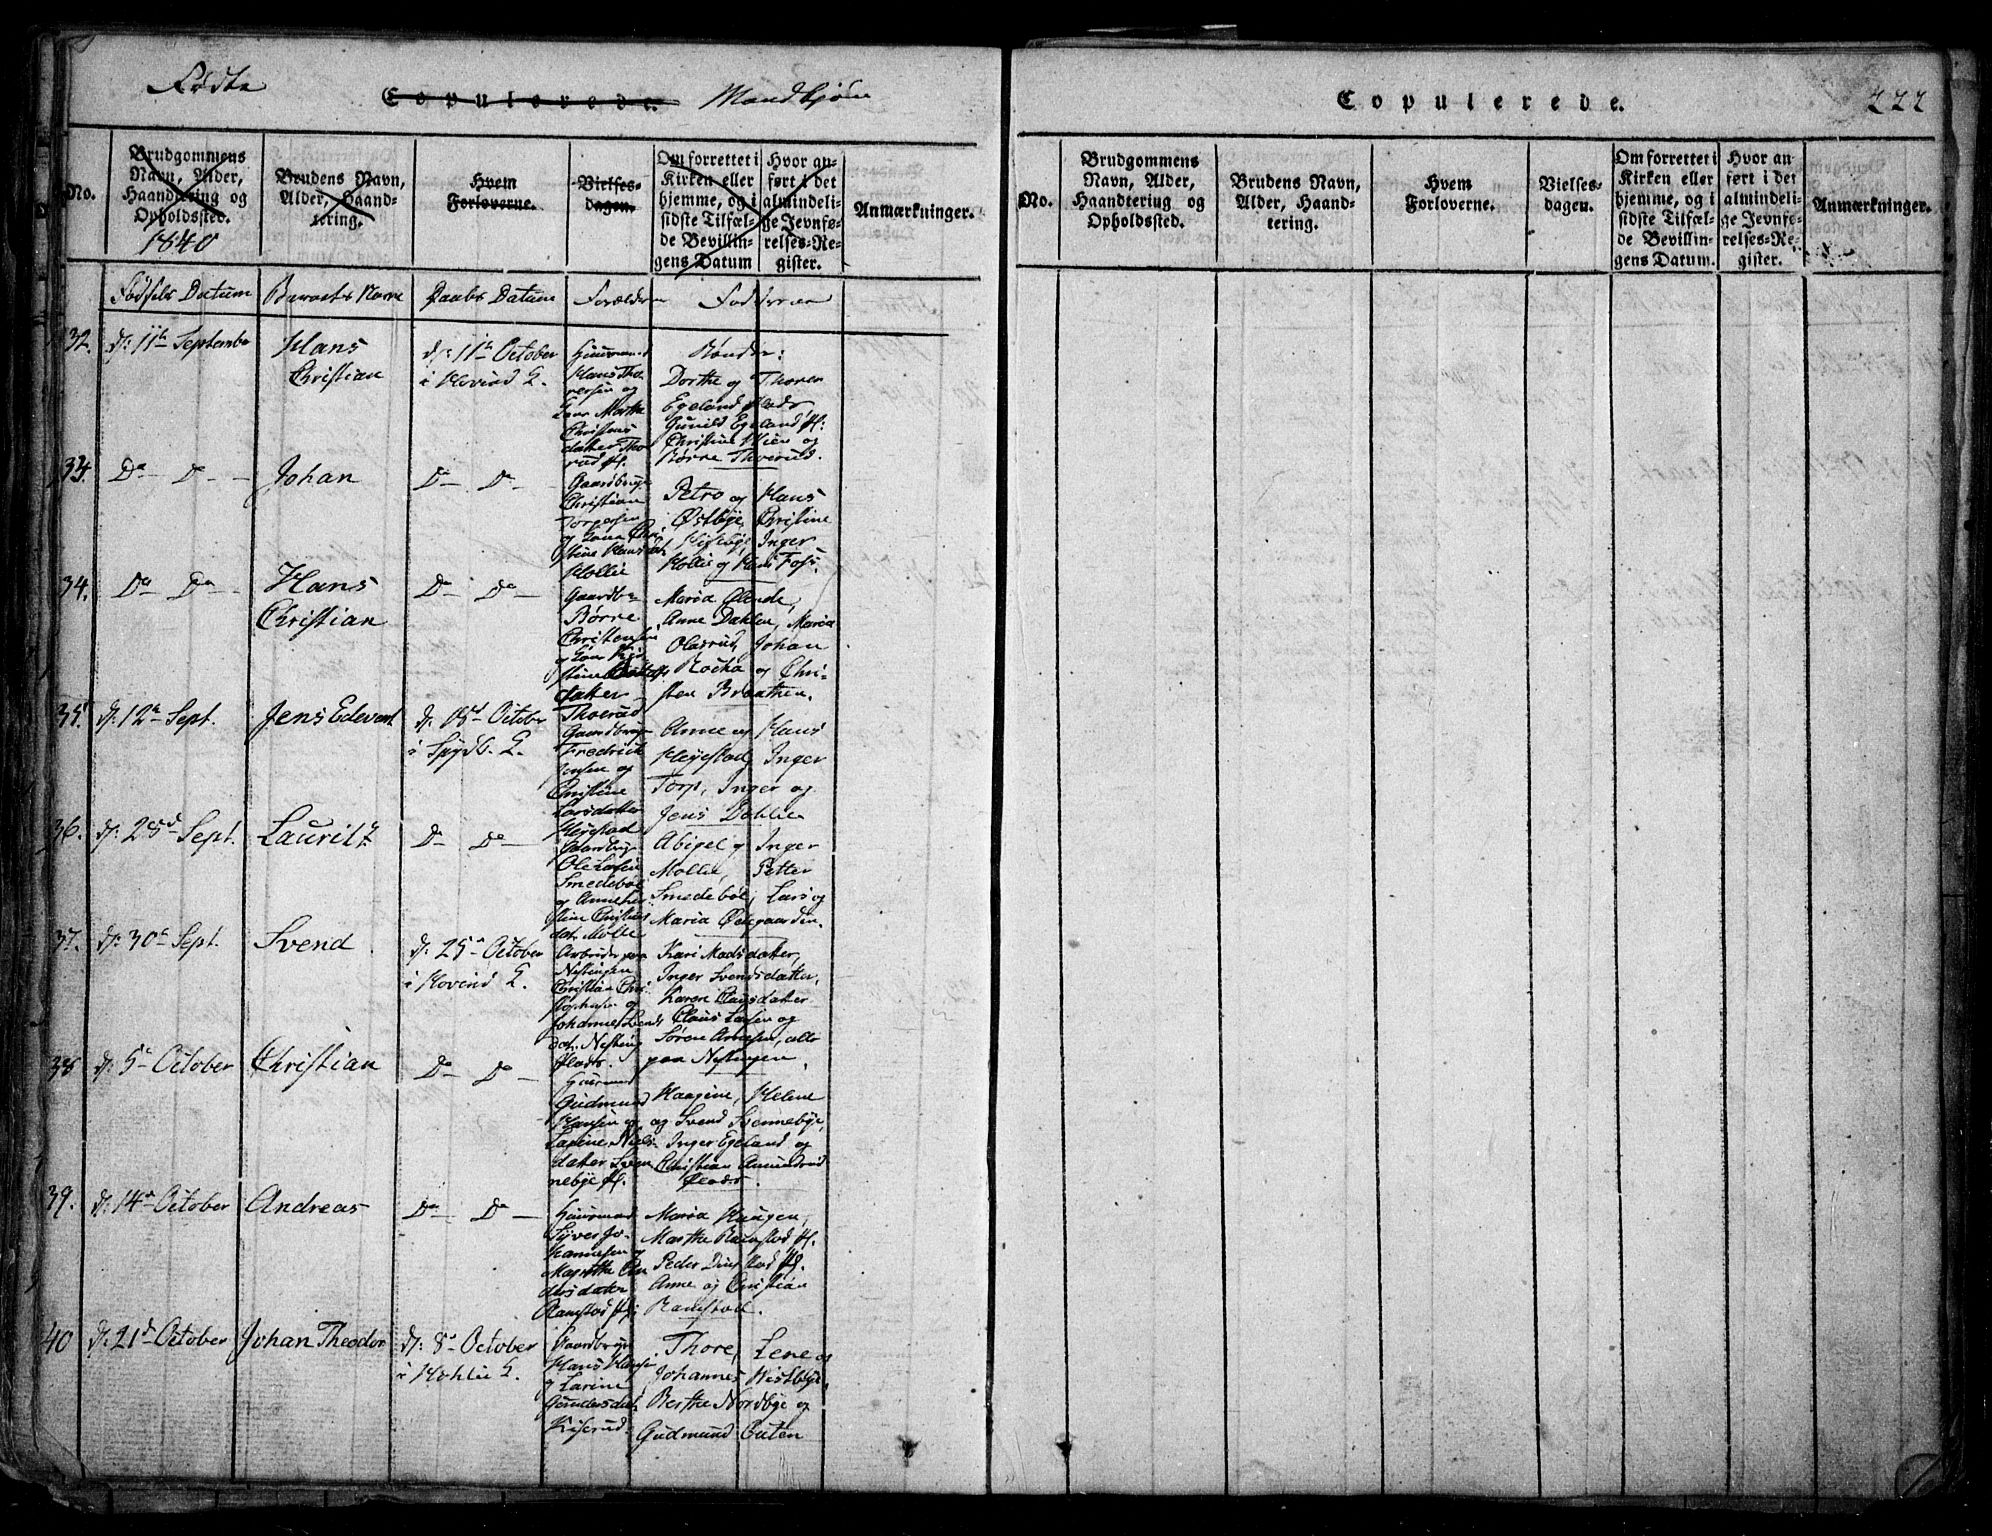 Fødte
Copulerede.
Mandkjøn
No.
Brudgommens
Navn, Alder,
Haandtering og
Opholdssted.
1840
Brudens Navn,
Alder, Haand-
tering.
Hvem
Forloverne.
Vielses-
dagen.
Om forrettet i
Kirken eller
hjemme, og i
sidste Tilfæl-
de Bevillin-
gens Datum
Hvor an-
ført i det
almindeli-
ge Jevnfø-
relses-Re-
gister.
Anmærkninger.
Fødsels Datum
Barnets Navn
Daabs Datum
Forældre
Fadderne
32.
d: 11te September
Hans
Christian
d: 11te October
i Hovind K.
Huusmand
Hans Tho-
resen og
Marthe
Christens
datter Tho-
rud
Bønder:
Dorthe og Thorer
Egeland Plads
Gunild Egeland
Christine og
Børre Thorrud.
33.
Do Do
Johan
Do Do
Gaardbruger
Christian
og
stine Hansdat.
Hollie
Petro og Hans
Østbye, Christine
Inger
Hollie og Hans Foss.
34.
Do Do
Hans
Christian
Do Do
Gaardbr.
Børre
Christensen
datter
Thorrud
Maria
Anne Dahlen, Maria
Olasrud, Johan
og Chri-
sten Braathen.
35.
d: 12te Sept.
Jens Edevart
d: 18d October
i Spydb. K.
Gaardbrug
Fredrick
Jensen og
Christine
Larsdatter
Heyestad
Anne og Hans
Heyestad, Inger
Torp, Inger og
Jens Dahlie
36.
d: 23d Sept.
Lauritz
Do Do
Gaardbrug
Ole Larsen
Smedebøl
og
stine Christens
dat. Molle
Abigel og Inger
Mollie, Petter
Smedebøl, Lars og
Maria Ødegaarden.
37.
d: 30te Sept.
Svend
d: 25te October
i Hovind K.
Arbeider paa
Nestingen
Christian Chri-
stophersen og
Johanne Svends
dat. Nesting
Plads.
Kari Madsdatter,
Inger Svensdatter,
Karen Clausdatter
Claus Larsen og
Søren, alle
paa Nestingen.
38
d: 5te October
Christian
Do Do
Huusmand
Gudmund
Hansen og
Niels
datter Sven
nebye
Haagine, Helene
og Svend Svennebye,
Inger Egeland og
Christian Amundrud
Plads.
39.
d: 14de October
Andreas
Do Do
Huusmand
Syver Jo-
hannesen og
Marthe An
dersdatter
Ramstad
Maria Haugen,
Marthe Ramstad
Peder
Anne og Christian
Ramstad.
40
d: 21d October
Johan Theodor
d: 8de October
i Hohlie K.
Gaardbruger
Hans Hansen
og Larine
Gundersdat.
Thore, Lene og
Johannes Westbye,
Berthe Nordbye og
Gudmund Outen
Copulerede.
222
No.
Brudgommens
Navn, Alder,
Haandtering og
Opholdssted.
Brudens Navn,
Alder, Haand-
tering.
Hvem
Forloverne.
Vielses-
dagen.
Om forrettet i
Kirken eller
hjemme, og i
sidste Tilfæl-
de Bevillin-
gens Datum.
Hvor an-
ført i det
almindeli-
ge Jevnfø-
relses-Re-
gister.
Anmærkninger.